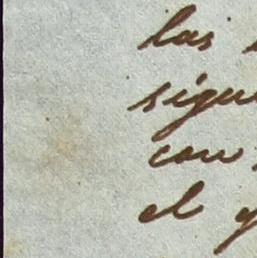 las
sigue
con
el y